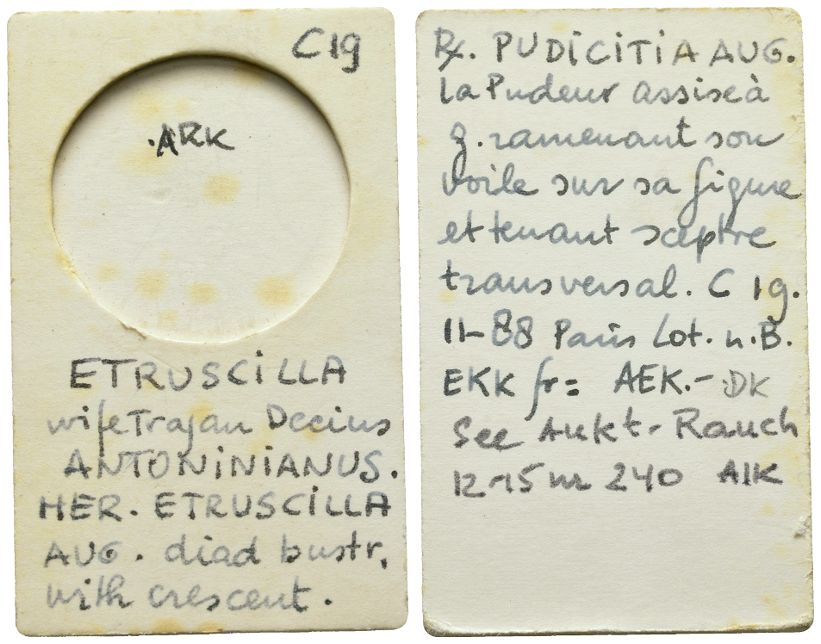 C 19
.ARK
ETRUSCILLA
wife Trajan Decius
ANTONINIANUS.
HER. ETRUSCILLA
AUG. diad bustr,
with crescent.
℞. PUDICITIA AUG.
la Pudeur assise à
g. ramenant son
voile sur sa figure
et tenant sceptre
transversal. C 19.
11-88 Paris Lot. n.B.
EKK fr= AEK.- DK
See Aukt. Rauch
12-15 nr 240 AIK